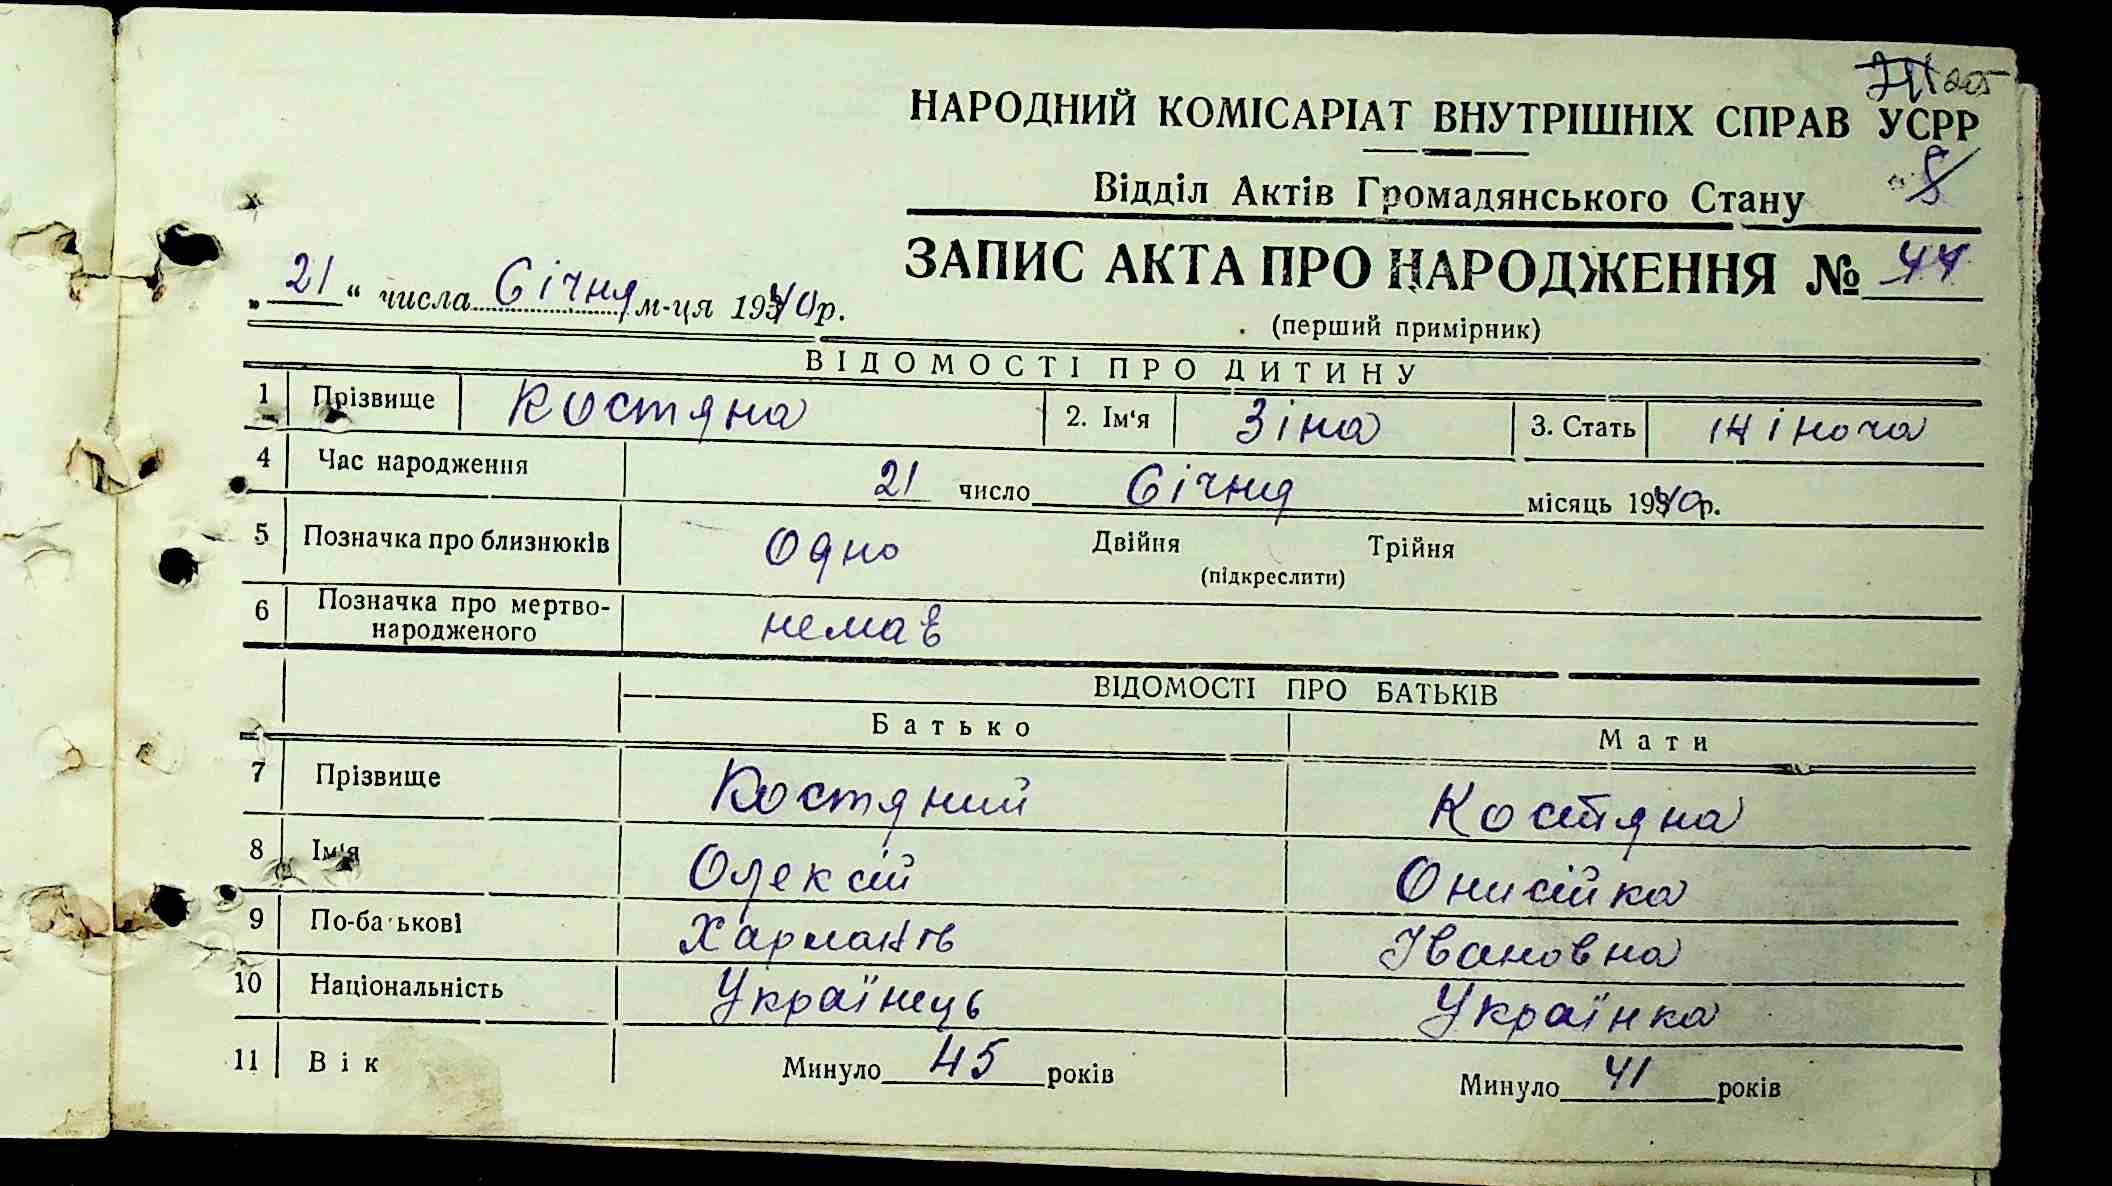 205
НАРОДНИЙ КОМІСАРІАТ ВНУТРІШНІХ СПРАВ УСРР
Відділ Актів Громадянського Стану
ЗАПИС АКТА ПРО НАРОДЖЕННЯ № 44
„21“ числа Січня м-ця 1940 р.
(перший примірник)
ВІДОМОСТІ ПРО ДИТИНУ
1 Прізвище Костяна 2. Ім'я Зіна 3. Стать жіноча
4 Час народження 21 число Січня місяць 1940 р.
5 Позначка про близнюків Одно Двійня Трійня
(підкреслити)
6 Позначка про мертво-
народженого немає
ВІДОМОСТІ ПРО БАТЬКІВ
Батько Мати
7 Прізвище Костяний Костяна
8 Ім'я Олексій Онисійка
9 По-батькові Івановна
10 Національність Українець Українка
11 Вік Минуло 45 років Минуло 41 років